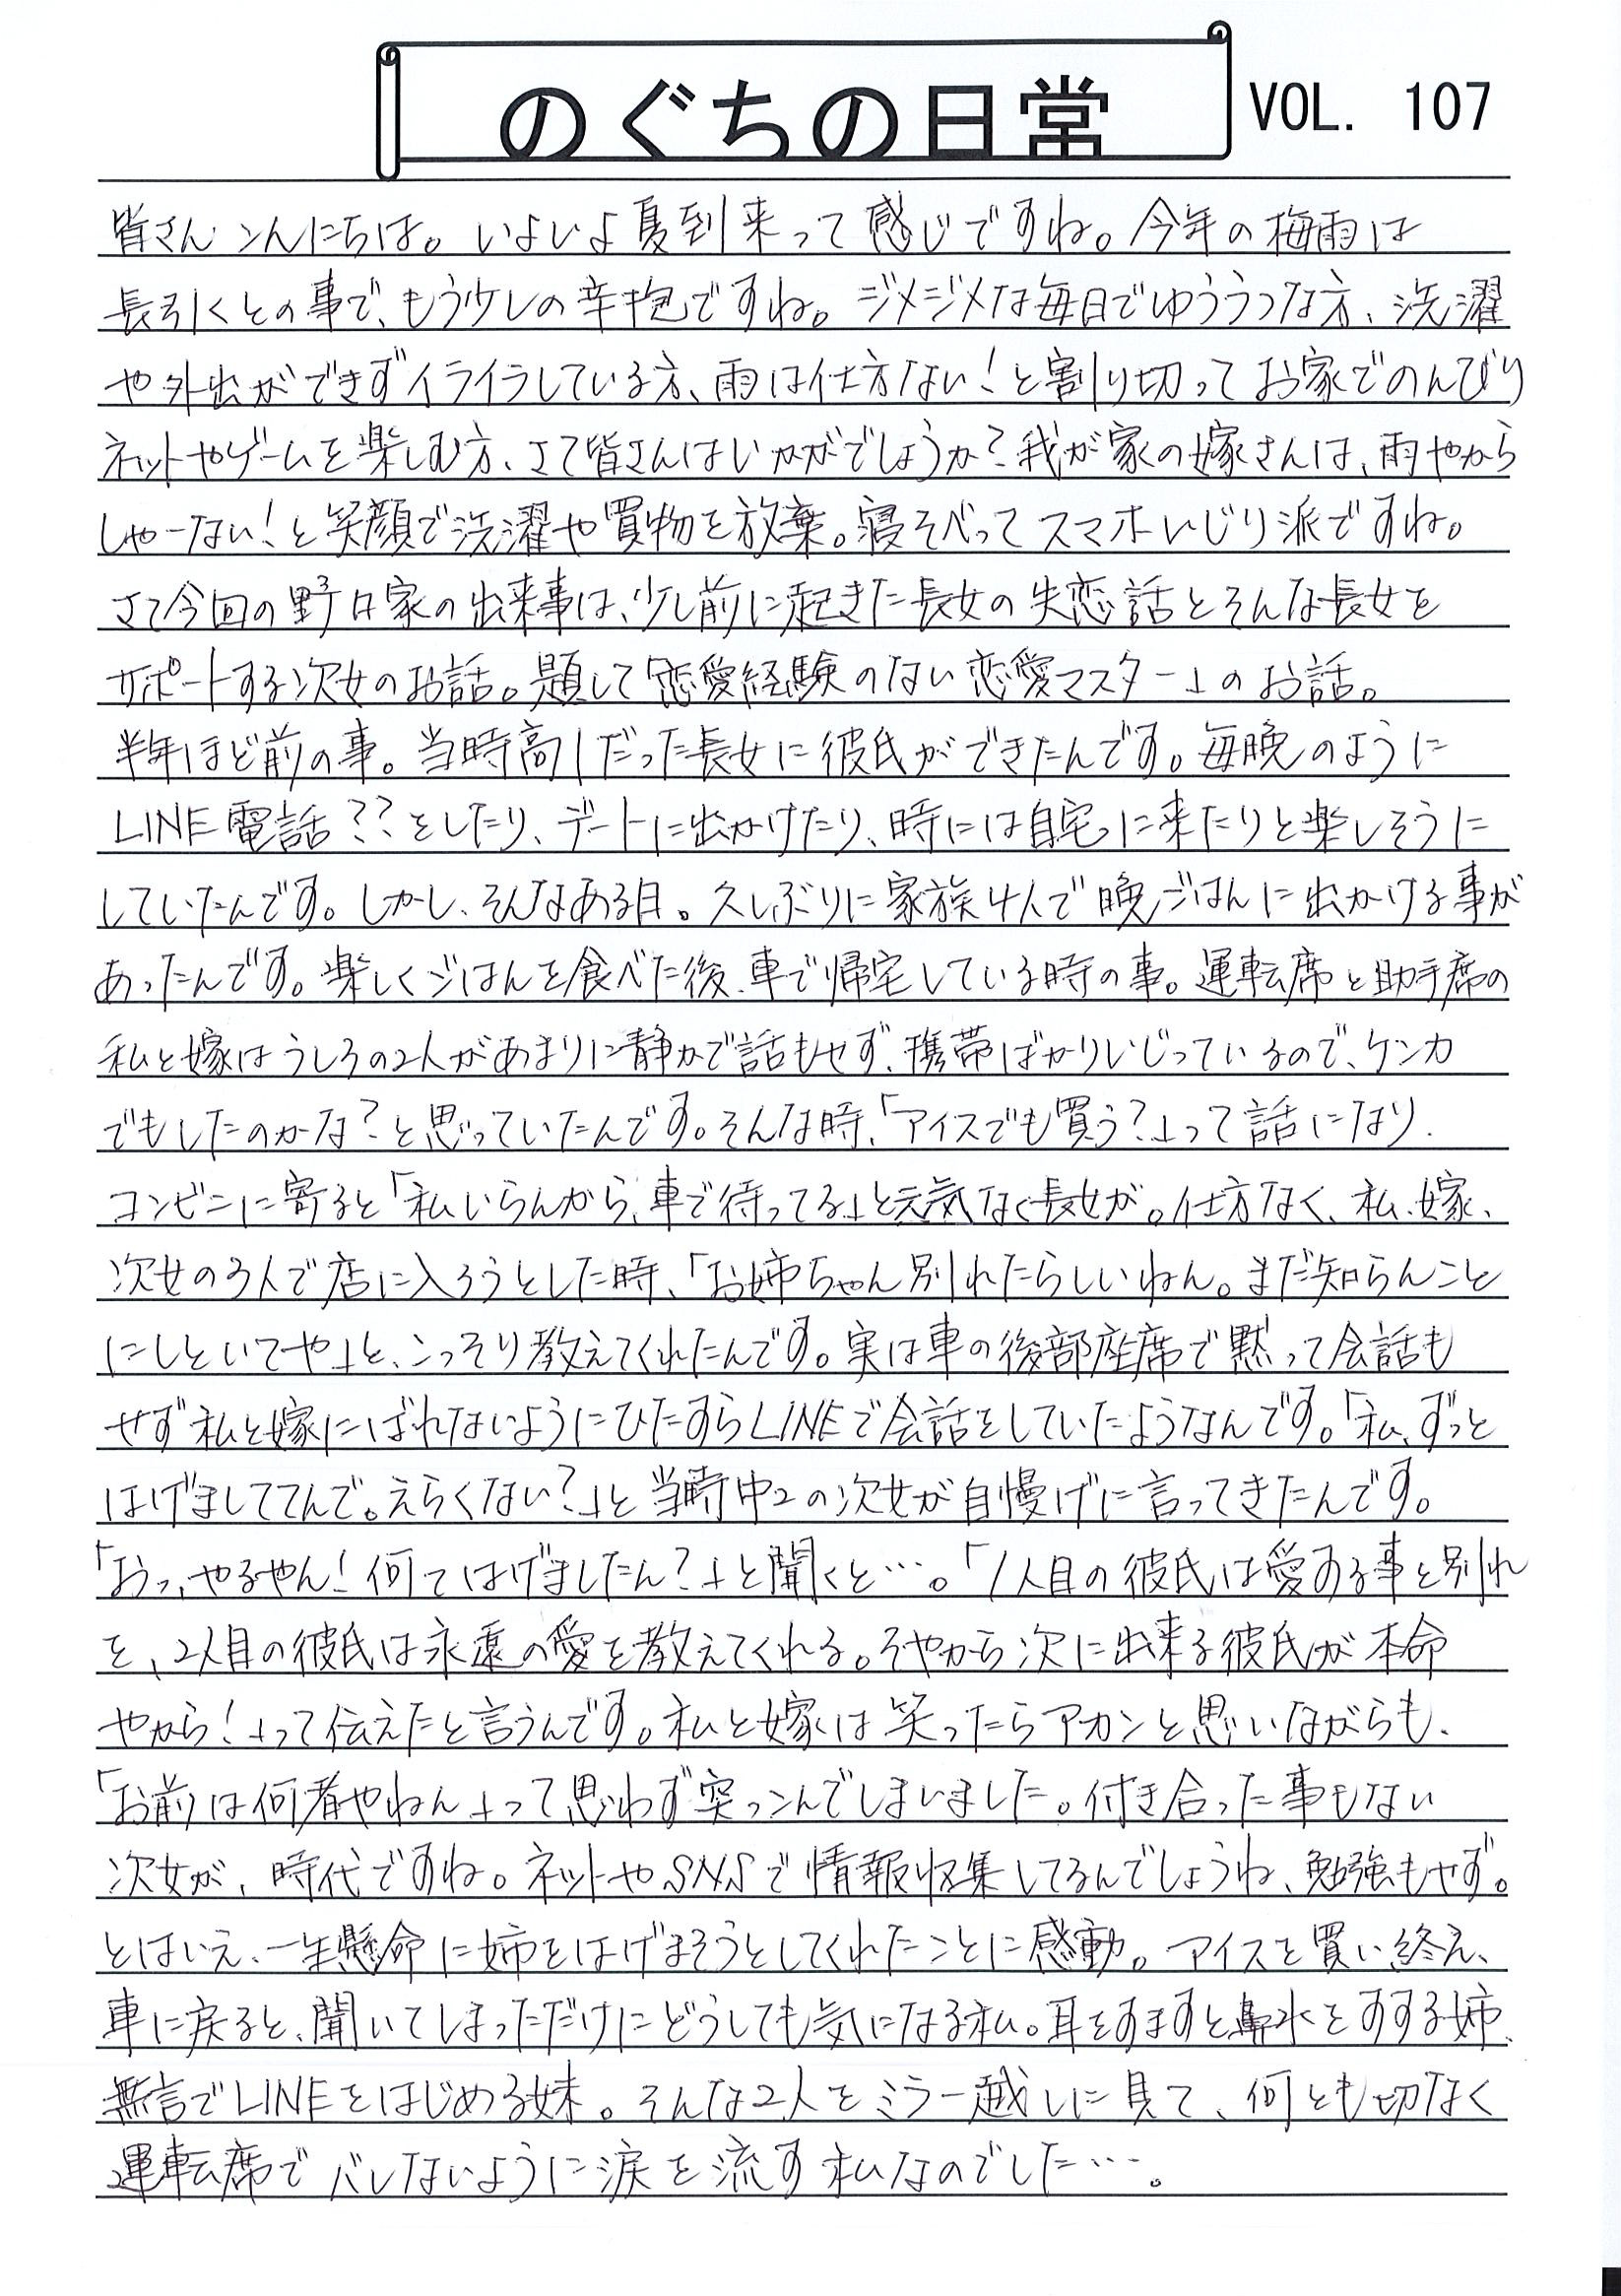 のぐちの日常 VOL. 107
皆さんこんにちは。いよいよ夏到来って感じですね。今年の梅雨は
長引くとの事で、もう少しの辛抱ですね。ジメジメな毎日でゆううつな方、洗濯
や外出ができずイライラしている方、雨は仕方ない!と割り切ってお家でのんびり
ネットやゲームを楽しむ方、さて皆さんはいかがでしょうか?我が家の嫁さんは、雨やから
しゃーない!と笑顔で洗濯や買物を放棄。寝そべってスマホいじり派ですね。
さて今回の野口家の出来事は、少し前に起きた長女の失恋話とそんな長女を
サポートする次女のお話。題して「恋愛経験のない恋愛マスター」のお話。
半年ほど前の事。当時高1だった長女に彼氏ができたんです。毎晩のように
LINE電話??をしたり、デートに出かけたり、時には自宅に来たりと楽しそうに
していたんです。しかし、そんなある日。久しぶりに家族4人で晩ごはんに出かける事が
あったんです。楽しくごはんを食べた後、車で帰宅している時の事。運転席と助手席の
私と嫁はうしろの2人があまりに静かで話もせず、携帯ばかりいじっているので、ケンカ
でもしたのかな?と思っていたんです。そんな時、「アイスでも買う?」って話になり、
コンビニに寄ると「私いらんから、車で待ってる」と元気なく長女が。仕方なく、私、嫁、
次女の3人で店に入ろうとした時、「お姉ちゃん別れたらしいねん。まだ知らんこと
にしといてや」と、こっそり教えてくれたんです。実は車の後部座席で黙って会話も
せず私と嫁にばれないようにひたすらLINEで会話をしていたようなんです。「私、ずっと
はげましててんで。えらくない?」と当時中2の次女が自慢げに言ってきたんです。
「おっ、やるやん!何てはげましたん?」と聞くと…。「1人目の彼氏は愛する事と別れ
を、2人目の彼氏は永遠の愛を教えてくれる。そやから次に出来る彼氏が本命
やから!」って伝えたと言うんです。私と嫁は笑ったらアカンと思いながらも、
「お前は何者やねん」って思わず突っこんでしまいました。付き合った事もない
次女が、時代ですね。ネットやSNSで情報収集してるんでしょうね、勉強もせず。
とはいえ、一生懸命に姉をはげまそうとしてくれたことに感動。アイスを買い終え、
車に戻ると、聞いてしまっただけにどうしても気になる私。耳をすますと鼻水をすする姉、
無言でLINEをはじめる妹。そんな2人をミラー越しに見て、何とも切なく
運転席でバレないように涙を流す私なのでした…。